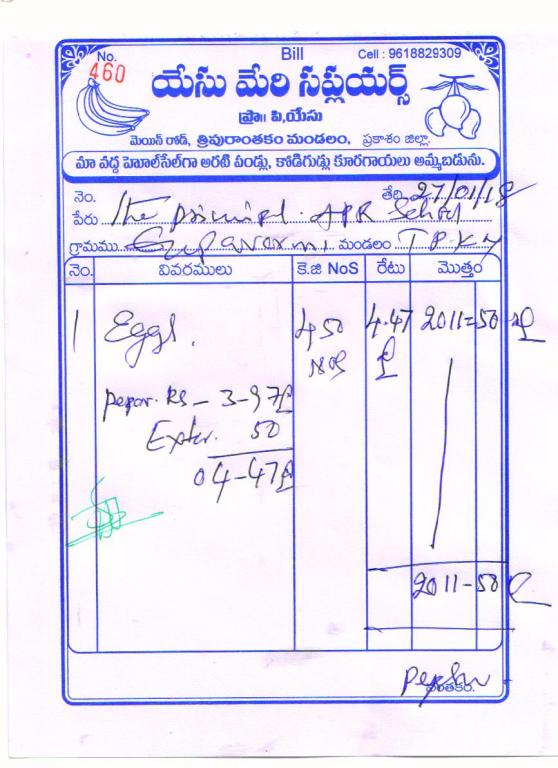 No. Bill Cell : 9618829309
460
యేసు మేరి సప్లయర్స్
ప్రొ॥ పి,యేసు
మెయిన్ రోడ్, త్రిపురాంతకం మండలం, ప్రకాశం జిల్లా.
మా వద్ద హెూల్‌సేల్‌గా అరటి పండ్లు, కోడిగుడ్లు కూరగాయలు అమ్మబడును.
నెం. తేది 27/01/18
పేరు The principal. APR School
గ్రామము మండలం T P. K y
నెం. వివరములు కె.జి NoS రేటు మొత్తం
1 Eggs. 450 4.47 2011=50
NOS
peper. RS - 3-97
Extr. 50
04-47
2011-50
సంతకం.